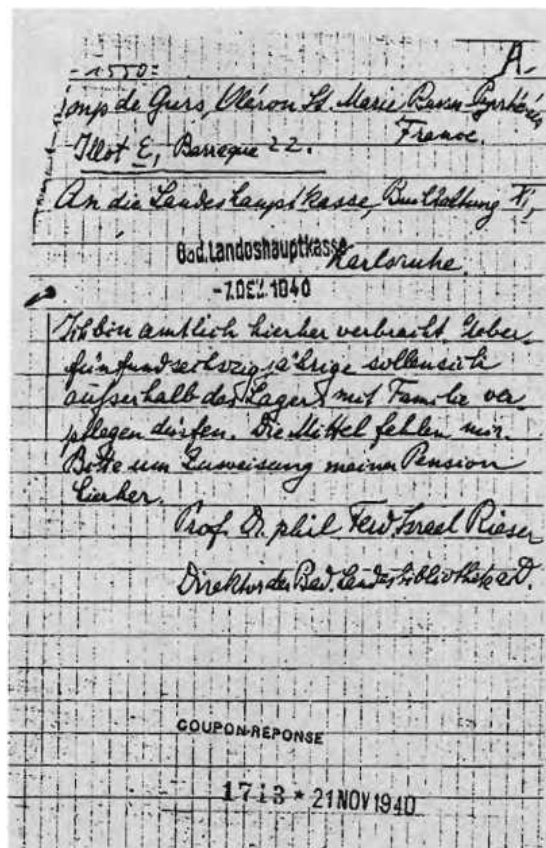 A.
-1550:
Camp de Gurs, Oléron St. Marie, Basses Pyrénées
Illot E, Barraque 22. France.
An die Landeshauptkasse, Buchhaltung VI,
Bad. Landeshauptkasse Karlsruhe.
-7.DEZ.1940
Ich bin amtlich hierher verbracht. Ueber-
fünfundsechszigjährige sollen sich
außerhalb des Lagers mit Familie ver-
pflegen dürfen. Die Mittel fehlen mir.
Bitte um Zuweisung meiner Pension
hierher.
Prof. Dr. phil Ferd. Israel Rieser
Direktor der Bad. Landesbibliothek a.D.
COUPON-REPONSE
1713 * 21 NOV 1940